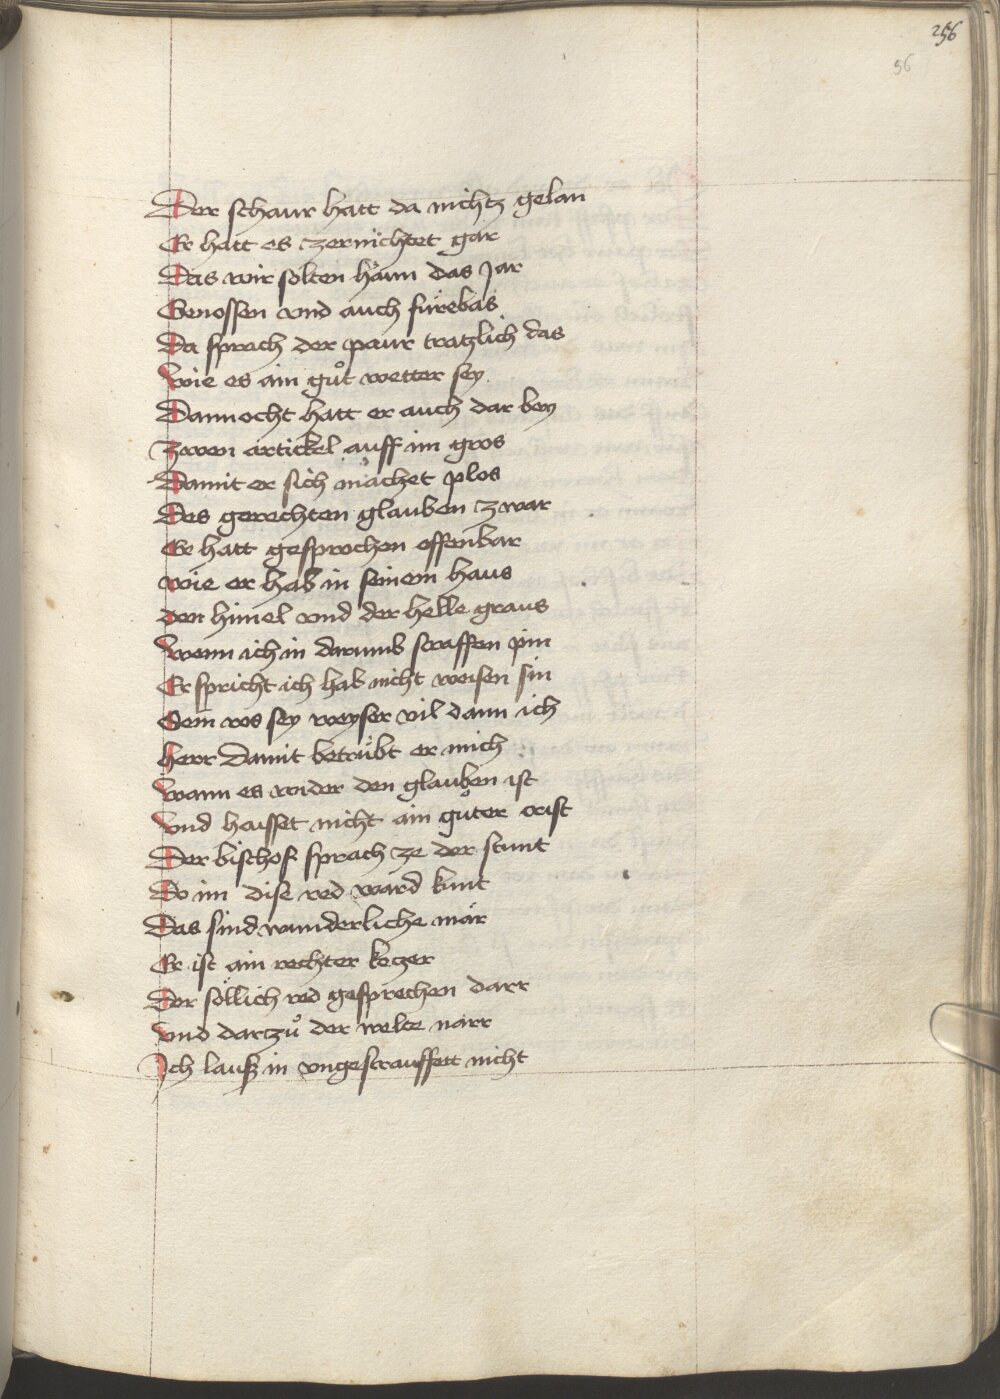 256
56
Der schaur hatt da nichtz gelan
Er hatt es zernichtet gar
Das wir solten hånn das Jar
Genossen vnd auch fürebas
Da sprach der paur tratzlich das
Wie es ain gůt wetter sey
Dannocht hatt er auch dar bey
Zwen artickel auff im gros
Damit er sich machet plos
Des gerechten glauben zwar
Er hatt gesprochen offenbar
wie er hab in seinem haus
den himel vnd der helle graus
Wenn ich in darumb straffen pin
Er spricht ich hab nicht weisen sin
Sein ros sey weyser vil dann ich
herr Damit betrübt er mich
Wann es wider den glauben ist
Vnd haisset nicht ain gůter crist
Der bischof sprach ze der stunt
Do im dise red ward kunt
Das sind wunderliche mär
Er ist ain rechter ketzer
Der söllich red gesprechen darr
Vnd dartzů der welte narr
Ich lauß in vngestrauffett nicht